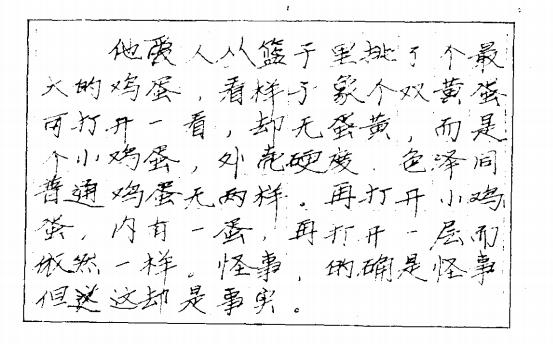 他爱人从篮子里挑了个最
大的鸡蛋，看样子象个双黄蛋
可打开一看，却无蛋黄，而是
个小鸡蛋，外壳硬度，色泽同
普通鸡蛋无两样。再打开小鸡
蛋，内有一蛋，再打开一层而
依然一样。怪事，的确是怪事
但这却是事实。